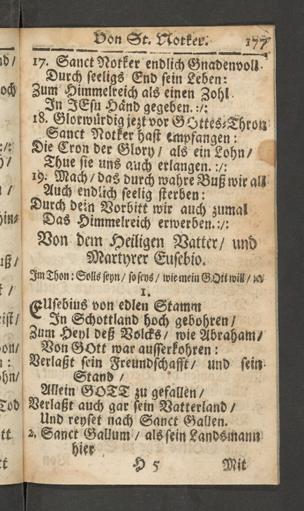 Von St. Notker. 177
17. Sanct Notker endlich Gnadenvoll
Durch seeligs End sein Leben:
Zum Himmelreich als einen Zohl
In JEsu Händ gegeben. :/:
18. Glorwürdig jezt vor GOttes-Thron
Sanct Notker hast empfangen:
Die Cron der Glory / als ein Lohn /
Thue sie uns auch erlangen. :/:
19. Mach / das durch wahre Buß wir all
Auch endlich seelig sterben:
Durch dein Vorbitt wir auch zumal
Das Himmelreich erwerben. :/:
Von dem Heiligen Vatter / und
Martyrer Eusebio.
Im Thon: Solls seyn / so seys / wie mein GOtt will / ꝛc
1.
EUsebius von edlen Stamm
In Schottland hoch gebohren /
Zum Heyl deß Volcks / wie Abraham /
Von GOtt war ausserkohren:
Verlaßt sein Freundschafft / und sein
Stand /
Allein GOTT zu gefallen /
Verlaßt auch gar sein Vatterland /
Und reyset nach Sanct Gallen.
2. Sanct Gallum / als sein Landsmann
hier
H 5 Mit